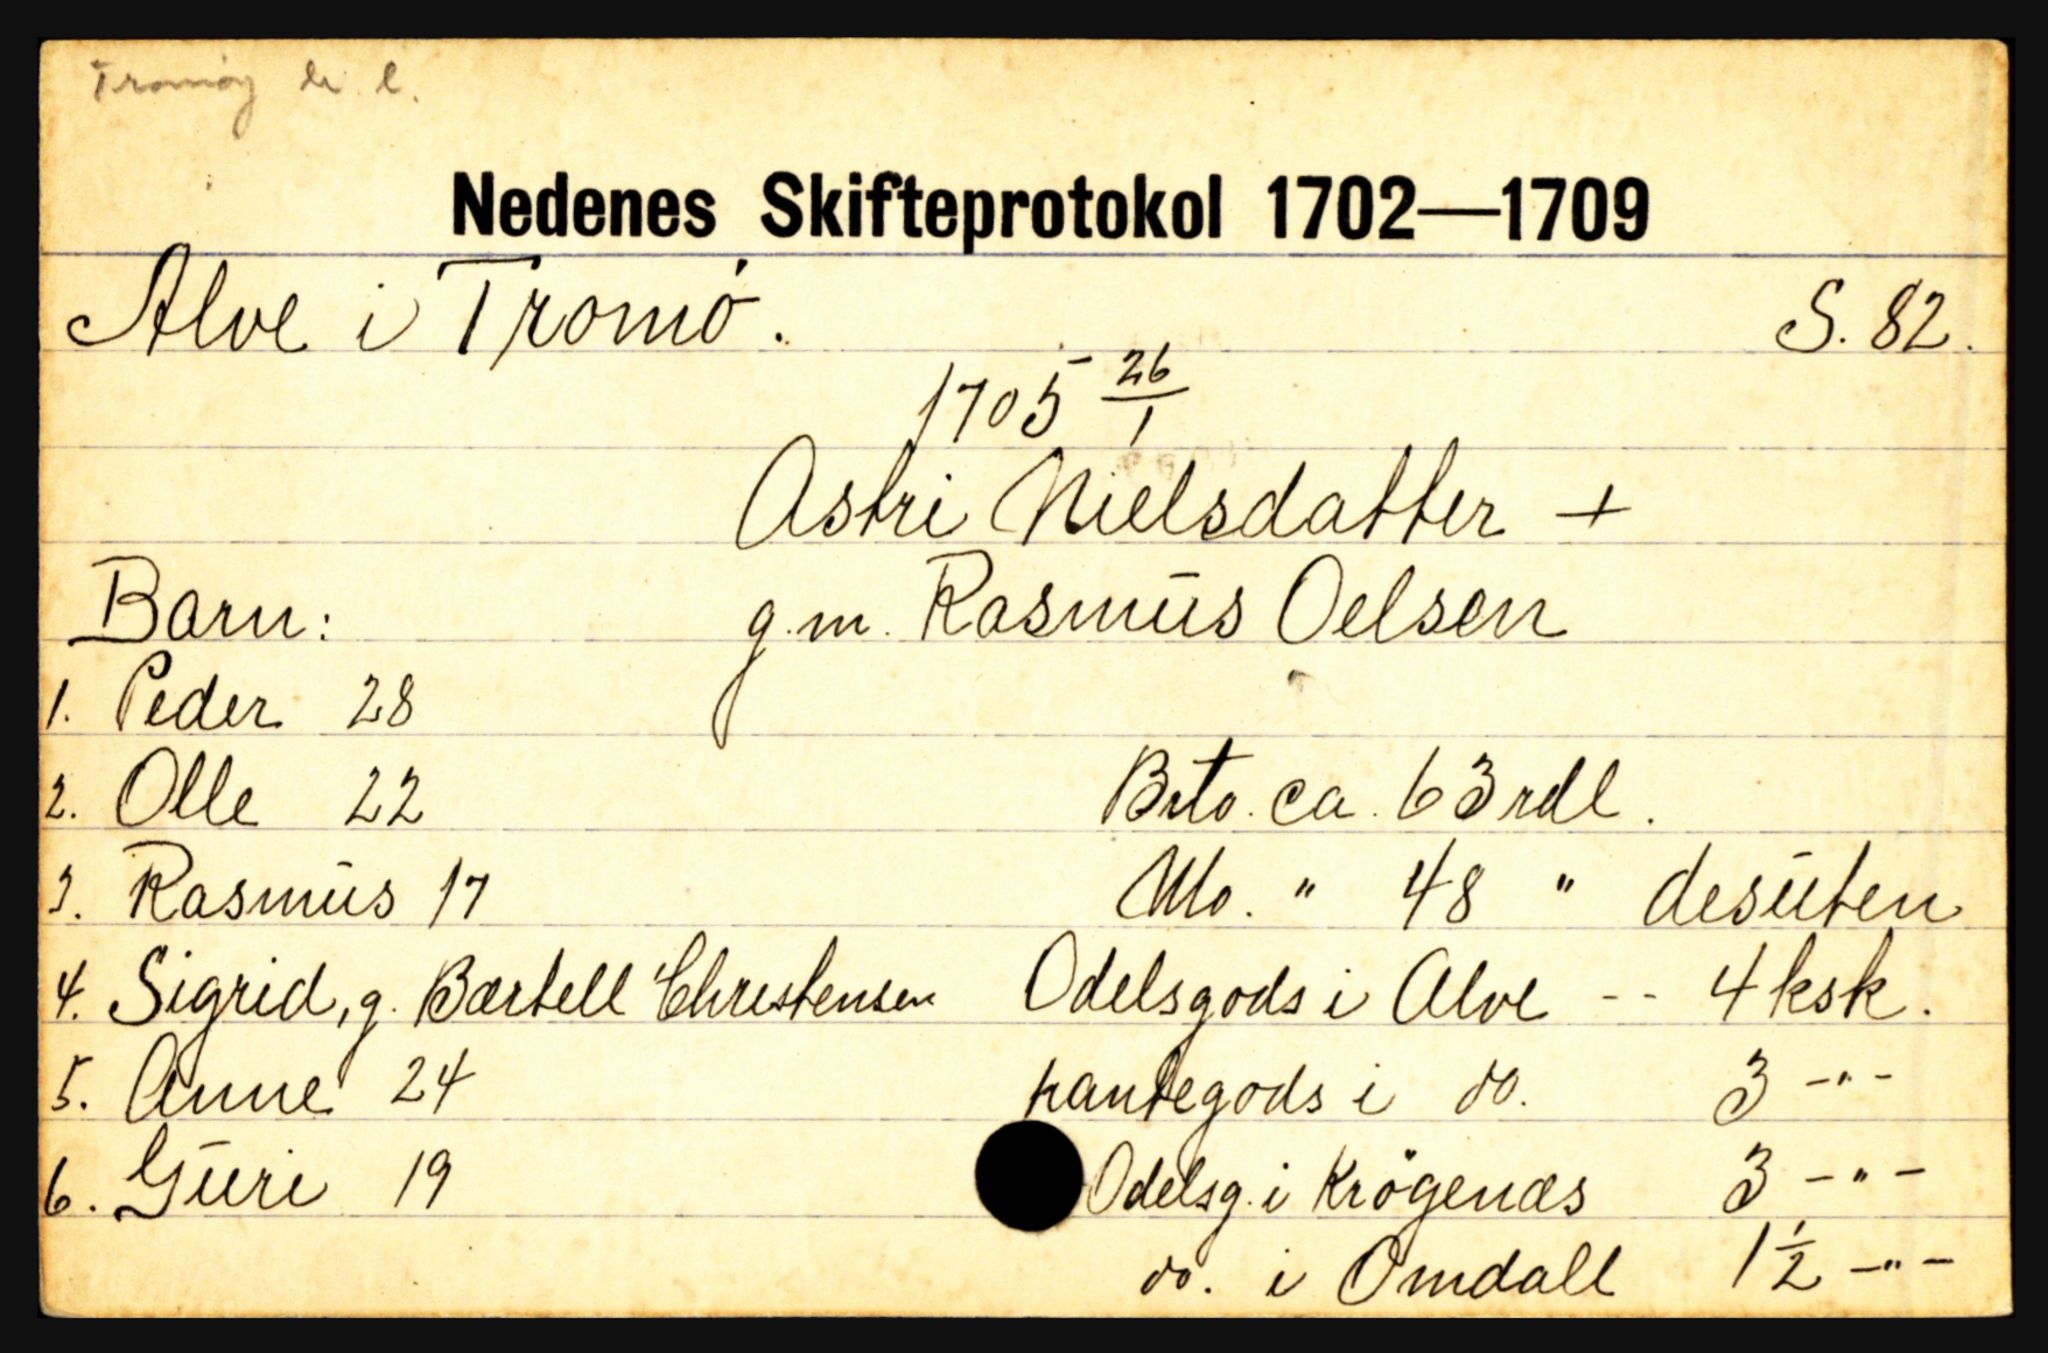 Tromøy
Nedenes Skifteprotokol 1702—1709
Alve i Tromö. S. 82.
1705 26/1
Astri Nielsdatter +
Barn: g.m. Rasmus Oelsen
1. Peder 28
2. Olle 22 Bto. ca. 63 rdl.
3. Rasmus 17 Nto. " 48 " desuten
4. Sigrid, g. Bærtell Christensen Odelsgods i Alve -- 4 ksk.
5. Anne 24 pantegods i do. 3 -"-
6. Guri 19 Odelsg. i Krögenæs 3 -"-
do. i Omdall 1 1/2 -"-